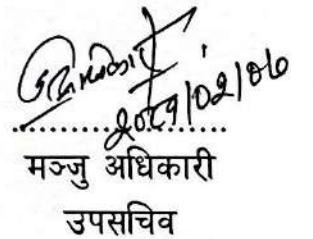 २०८१/०२/०७
..............................
मञ्जु अधिकारी
उपसचिव